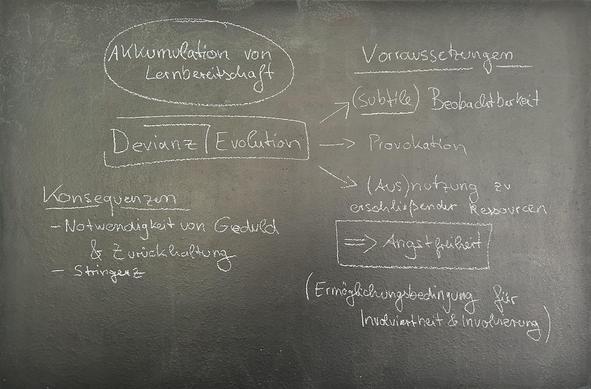 Akkumulation von
Lernbereitschaft
Devianz / Evolution
Konsequenzen
- Notwendigkeit von Geduld
& Zurückhaltung
- Stringenz
Vorraussetzungen
(Subtile) Beobachtbarkeit
Provokation
(Aus)nutzung zu
erschließender Ressourcen
=> Angstfreiheit
(Ermöglichungsbedingung für
Involviertheit & Involvierung)